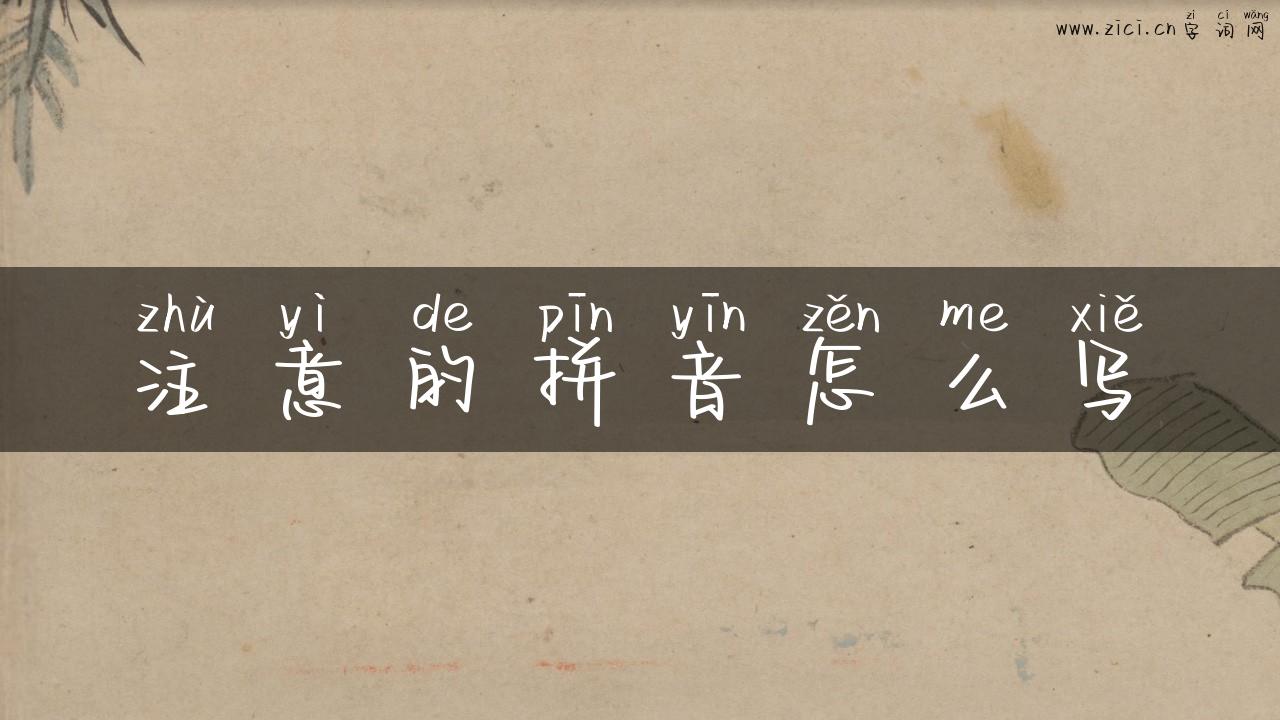 zì cí wǎng
www.zici.cn 字 词 网
zhù yì de pīn yīn zěn me xiě
注 意 的 拼 音 怎 么 写